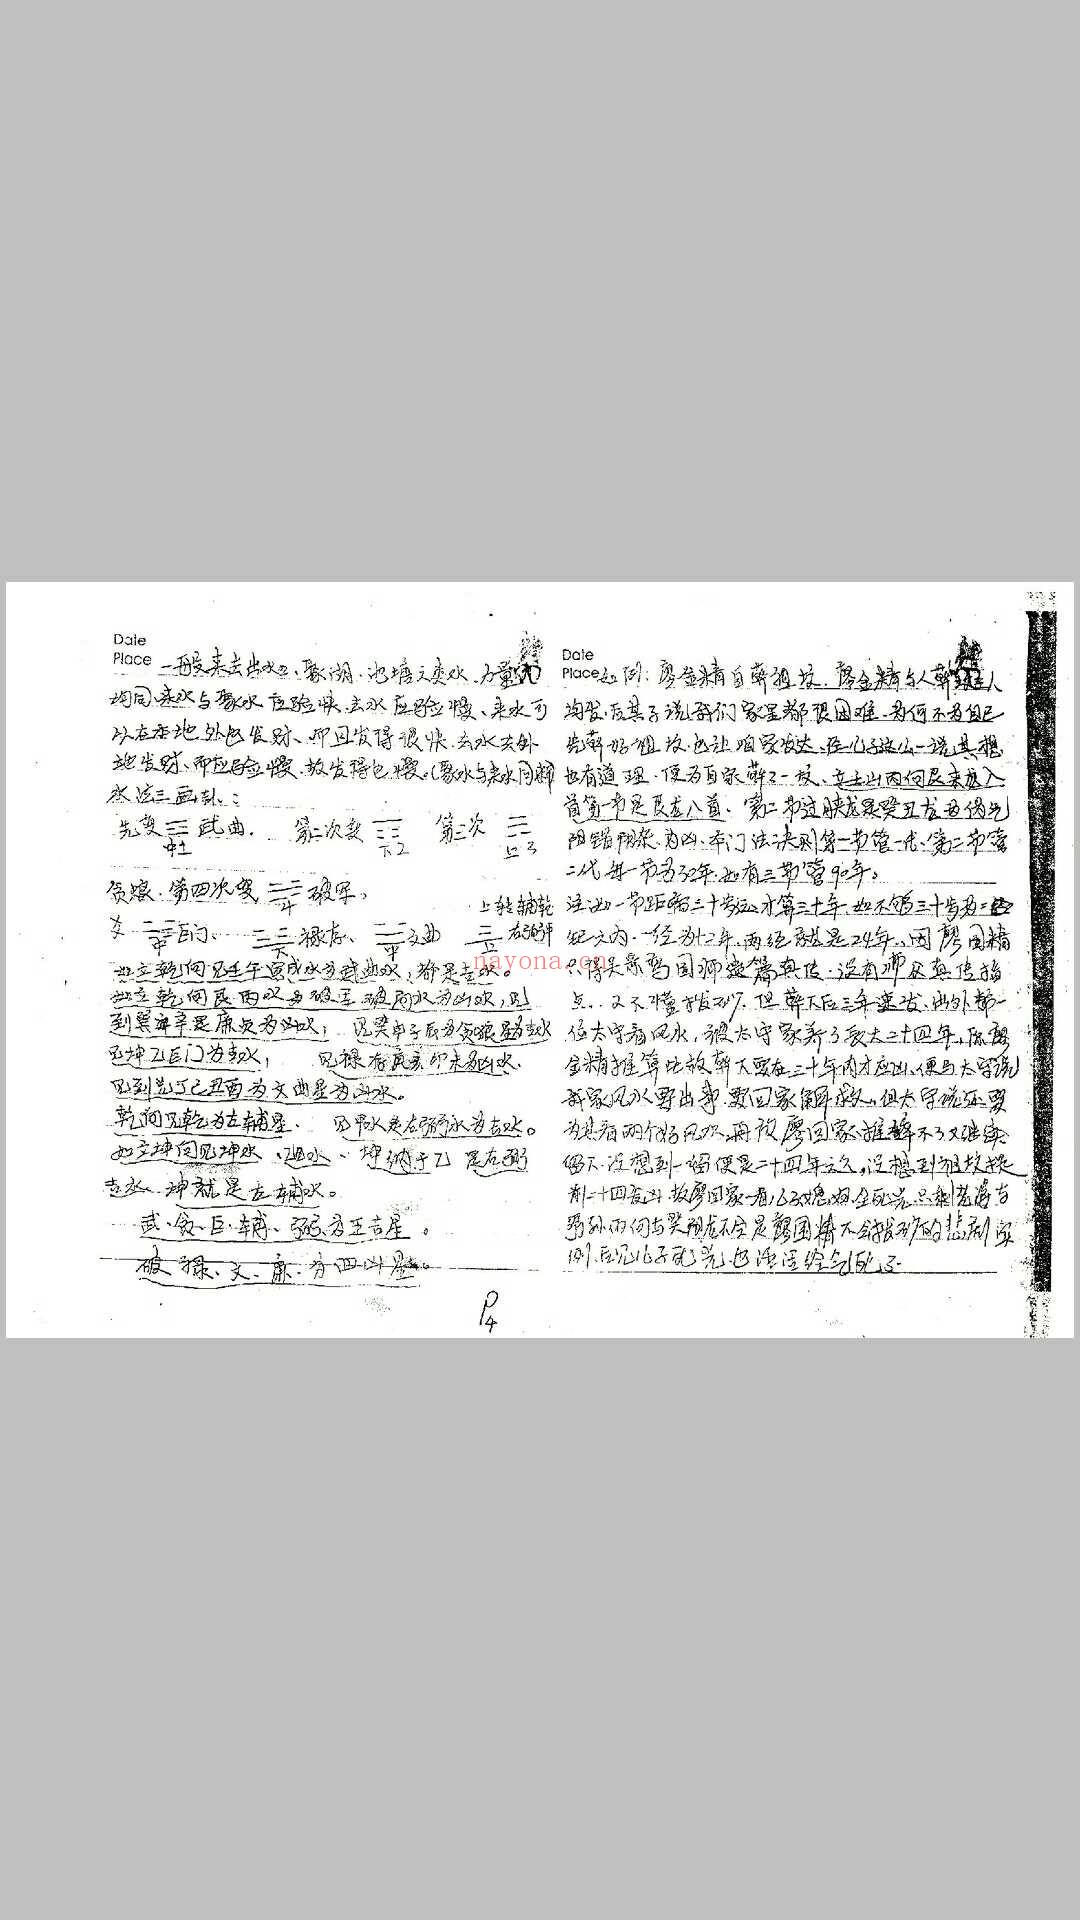 Date
Place 一般来去出水口、聚湖、池塘之类水、力量
均同来水与聚水应验快、去水应验慢、来水可
以在本地外包发财、而且发得很快、去水去外
地发财、而应验慢、故发得也慢。(聚水与来水同
水法三画卦:
先变 武曲. 第二次变 第三次
中1 下2 上3
贪狼、第四次变 破军,
4
巨门、 禄存、 文曲 上转辅乾
中 下 中 上
如立乾向见壬午寅戌水为武曲水,都是吉水。
如立乾向艮丙水为破军破局水为凶水,见
到巽辛是廉贞为凶水; 见癸申子辰为贪狼星为吉水
见坤乙巨门为吉水; 见禄存庚亥卯未为凶水.
见到兑丁巳丑酉为文曲星为凶水。
乾向见乾为左辅星. 见甲水是右弼水为吉水。
如立坤向见坤水、乙水、坤纳于乙是右弼
吉水、坤就是左辅水。
武、贪、巨、辅、弼、为五吉星。
破、禄、文、廉、为四凶星。
P4
Date
Place 如例:廖金精自葬祖坟、廖金精与人葬
均发,后其子说我们家里都很困难、为何不为自己
先葬好祖坟,也让咱家发达、经儿子这么一说其想
也有道理、便为自家葬了一坟、立壬山丙向艮来龙入
首第一节是艮龙入首、第二节过峡龙是癸丑龙
阴错阳杂、为凶、本门法决则第一节管一代、第二节管
二代每一节为30年、如有三节管90年。
注如一节距离三十步远才算三十年、如不够三十步为二
纪之内、一纪为十二年、两纪就是24年、因廖金精
只得 国师 篇真传、没有师公真传指
点、又不懂拨砂、但葬下后三年速发、出外替一
位太守看风水、被太守家养了长达二十四年、后廖
金精推算此坟葬下要在三十年内才应凶、便与太守说
我家风水要出事、要回家解救、但太守说还要
为其看两个好风水、再放廖回家推辞不了又继续
留下、没想到一留便是二十四年之久、没想到祖坟提
前二十四应凶、故廖回家一看,儿子媳妇全死光、只剩
孙 廖金精不会拨砂的悲剧实
例、后见儿子死光、也活活给气死了.